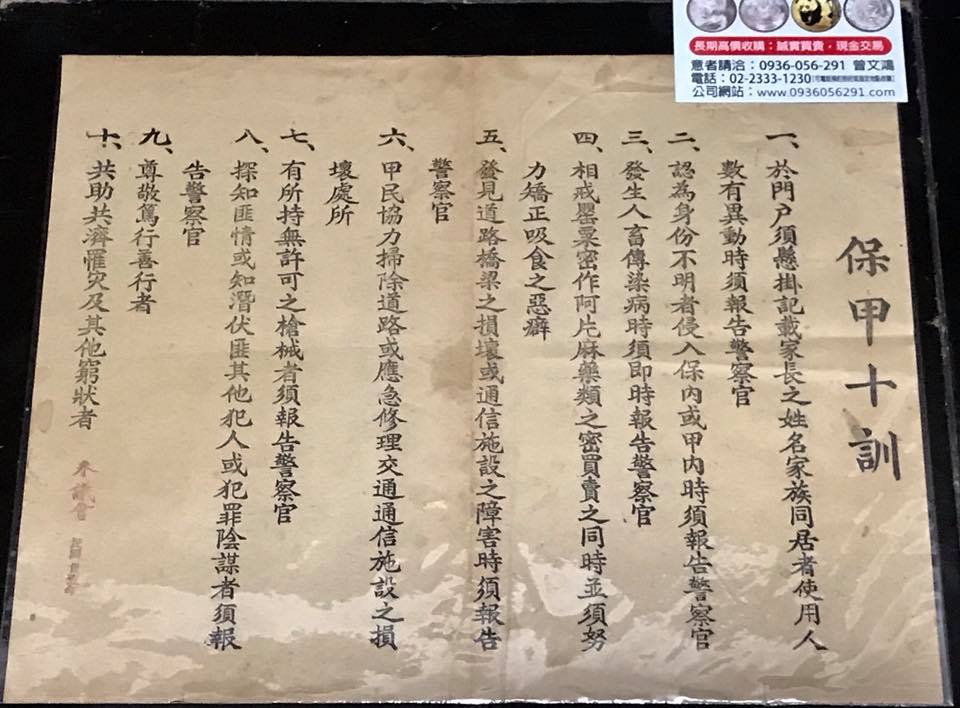 長期高價收購：誠實買賣，現金交易
意者請洽：0936-056-291 曾文鴻
電話：02-2333-1230
公司網站：www.0936056291.com
保甲十訓
一、於門戶須懸掛記載家長之姓名家族同居者使用人
數有異動時須報告警察官
二、認為身份不明者侵入保內或甲內時須報告警察官
三、發生人畜傳染病時須即時報告警察官
四、相戒罌粟密作阿片麻藥類之密買賣之同時並須努
力矯正吸食之惡癖
五、發見道路橋梁之損壞或通信施設之障害時須報告
警察官
六、甲民協力掃除道路或應急修理交通通信施設之損
壞處所
七、有所持無許可之槍械者須報告警察官
八、探知匪情或知潛伏匪其他犯人或犯罪陰謀者須報
告警察官
九、尊敬篤行善行者
十、共助共濟罹災及其他窮狀者